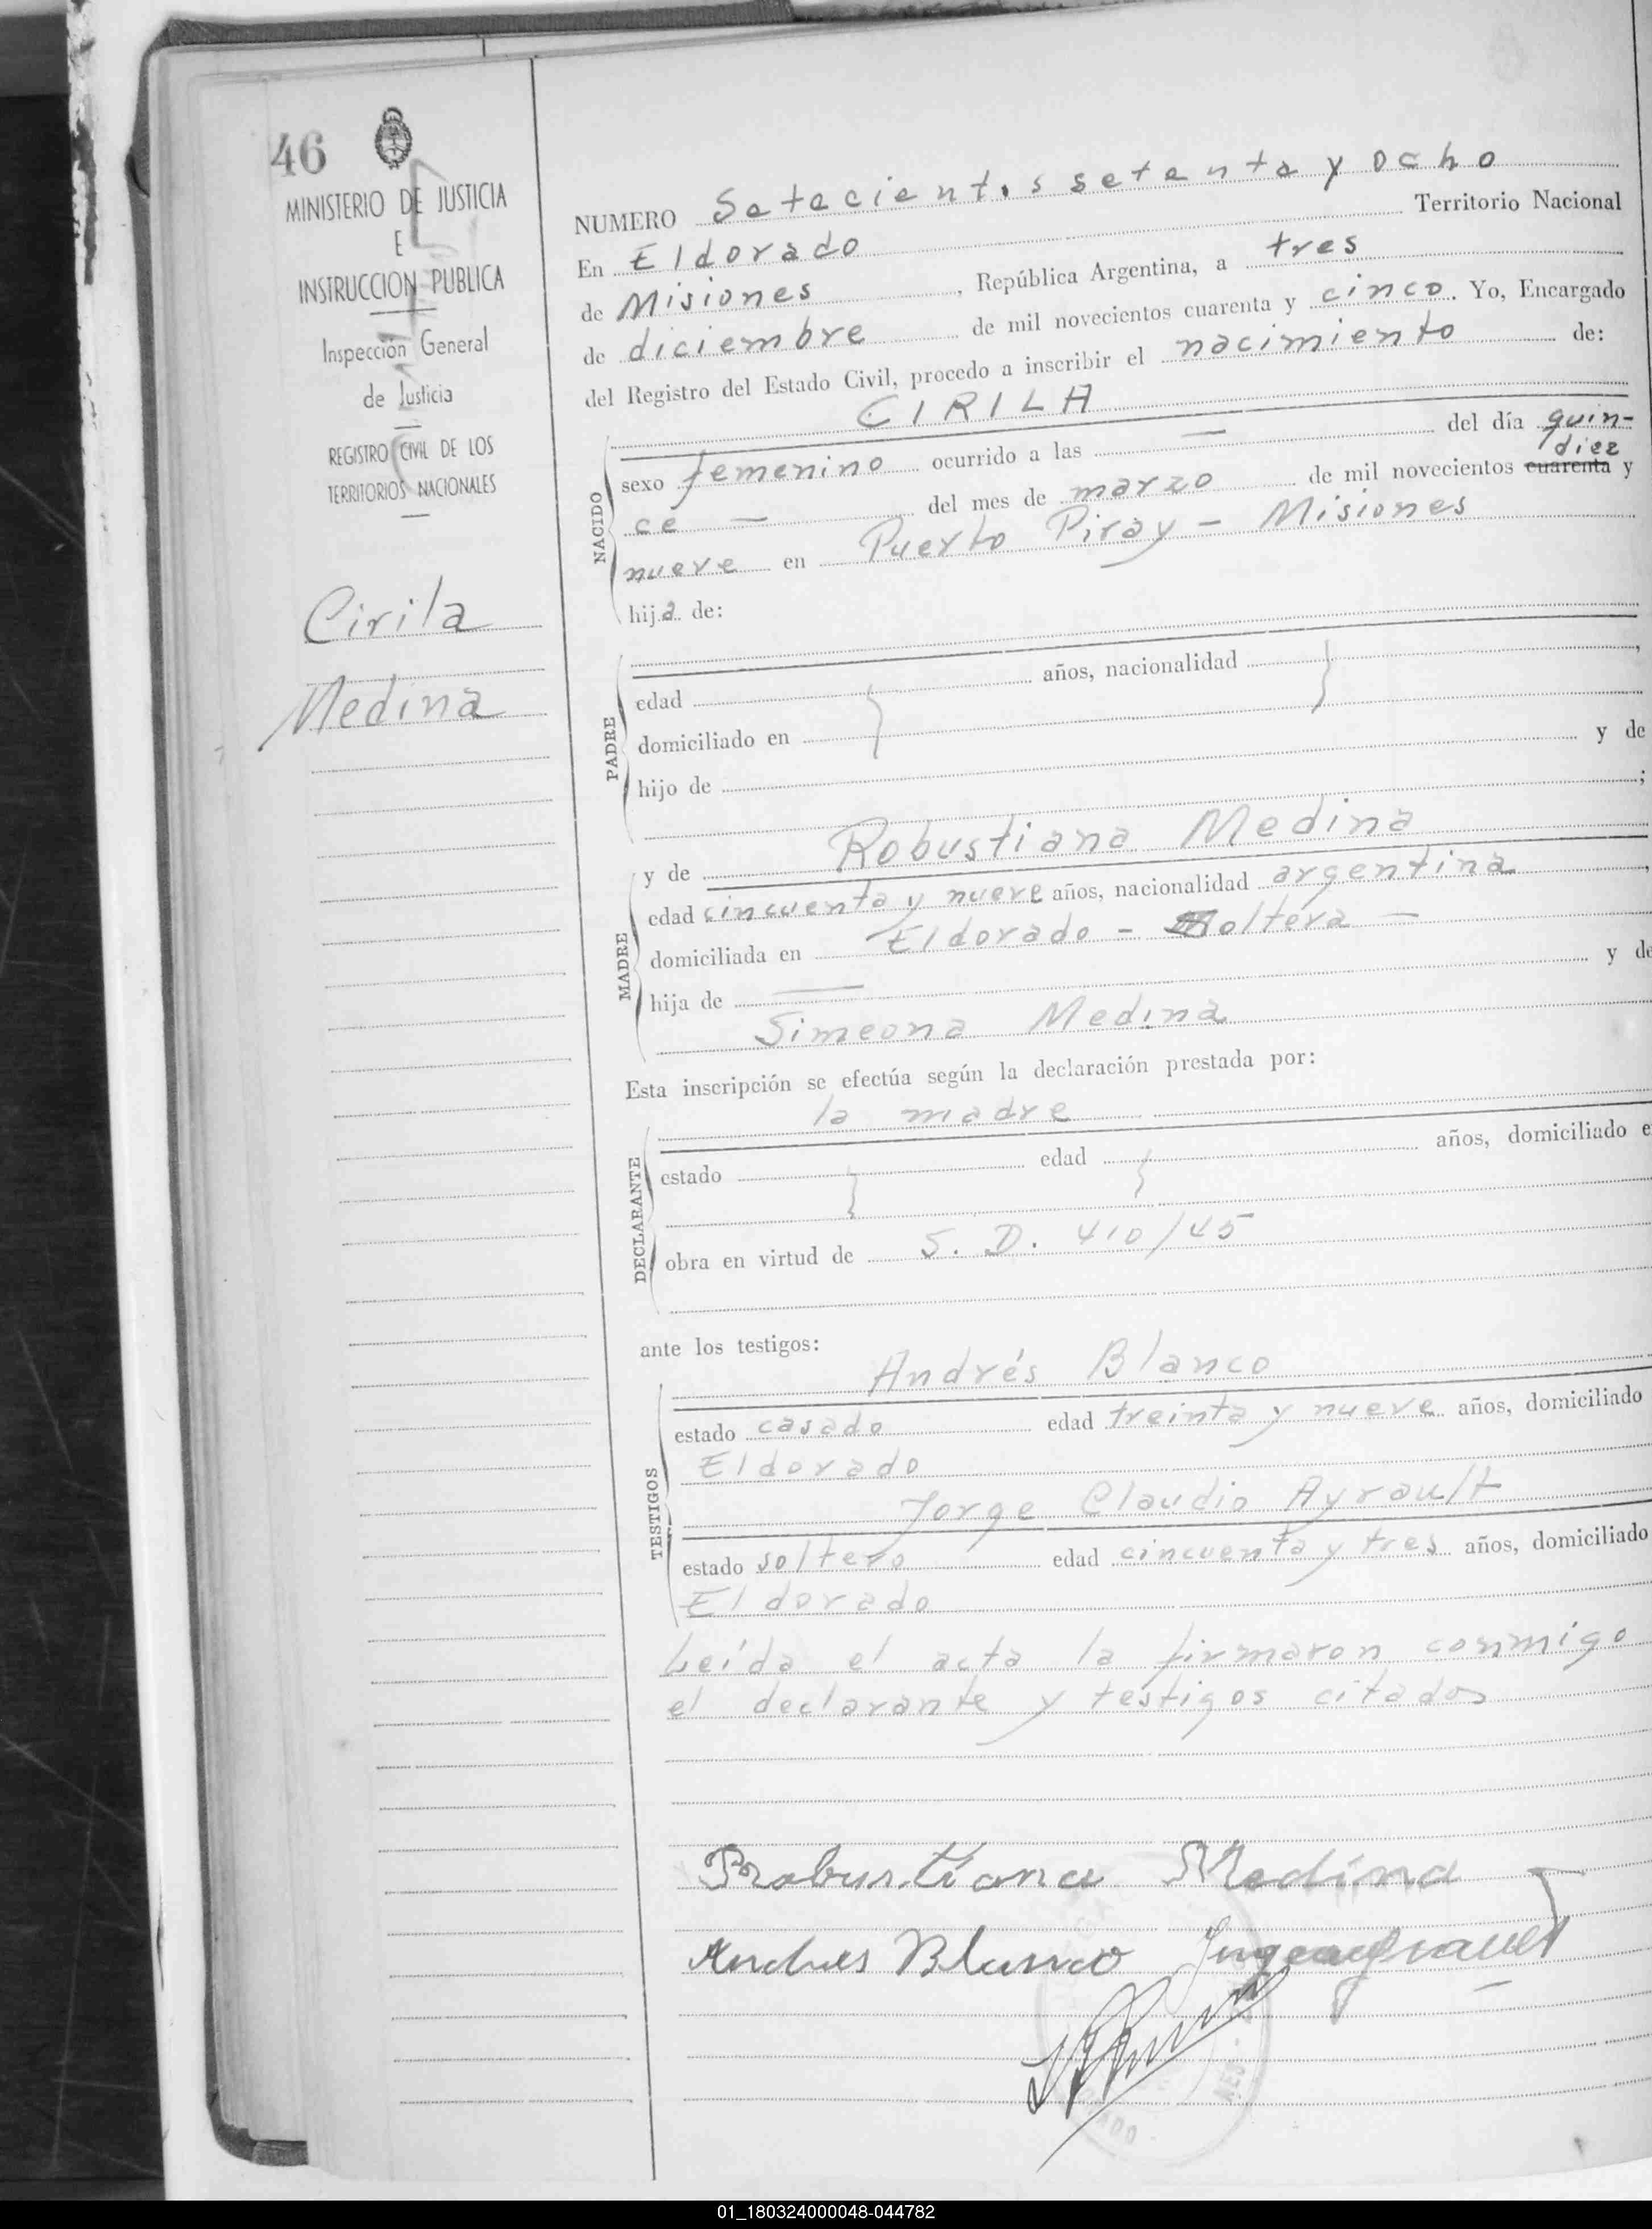 46
MINISTERIO DE JUSTICIA
E
INSTRUCCION PUBLICA
Inspección General
de Justicia
REGISTRO CIVIL DE LOS
TERRITORIOS NACIONALES
Cirila
Medina
NUMERO Setecientos setenta y ocho
En Eldorado Territorio Nacional
de Misiones, República Argentina, a tres
de diciembre de mil novecientos cuarenta y cinco. Yo, Encargado
del Registro del Estado Civil, procedo a inscribir el nacimiento de:
CIRILA
NACIDO
sexo femenino ocurrido a las — del día quin-
diez
ce — del mes de marzo de mil novecientos cuarenta y
nueve en Puerto Piray - Misiones
hija de:
PADRE
edad años, nacionalidad ,
domiciliado en
hijo de y de
;
MADRE
y de Robustiana Medina
edad cincuenta y nueve años, nacionalidad argentina,
domiciliada en Eldorado - soltera —
hija de — y de
Simeona Medina
Esta inscripción se efectúa según la declaración prestada por:
la madre
DECLARANTE
estado edad años, domiciliado e
obra en virtud de S. D. 410/45
ante los testigos:
Andrés Blanco
TESTIGOS
estado casado edad treinta y nueve años, domiciliado
Eldorado
Jorge Claudio Ayrault
estado soltero edad cincuenta y tres años, domiciliado
Eldorado
Leída el acta la firmaron conmigo
el declarante y testigos citados
Robustiana Medina
Andres Blanco
01_180324000048-044782